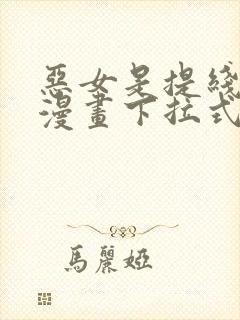 惡女是提綫
漫畫下拉式
馬麗婭